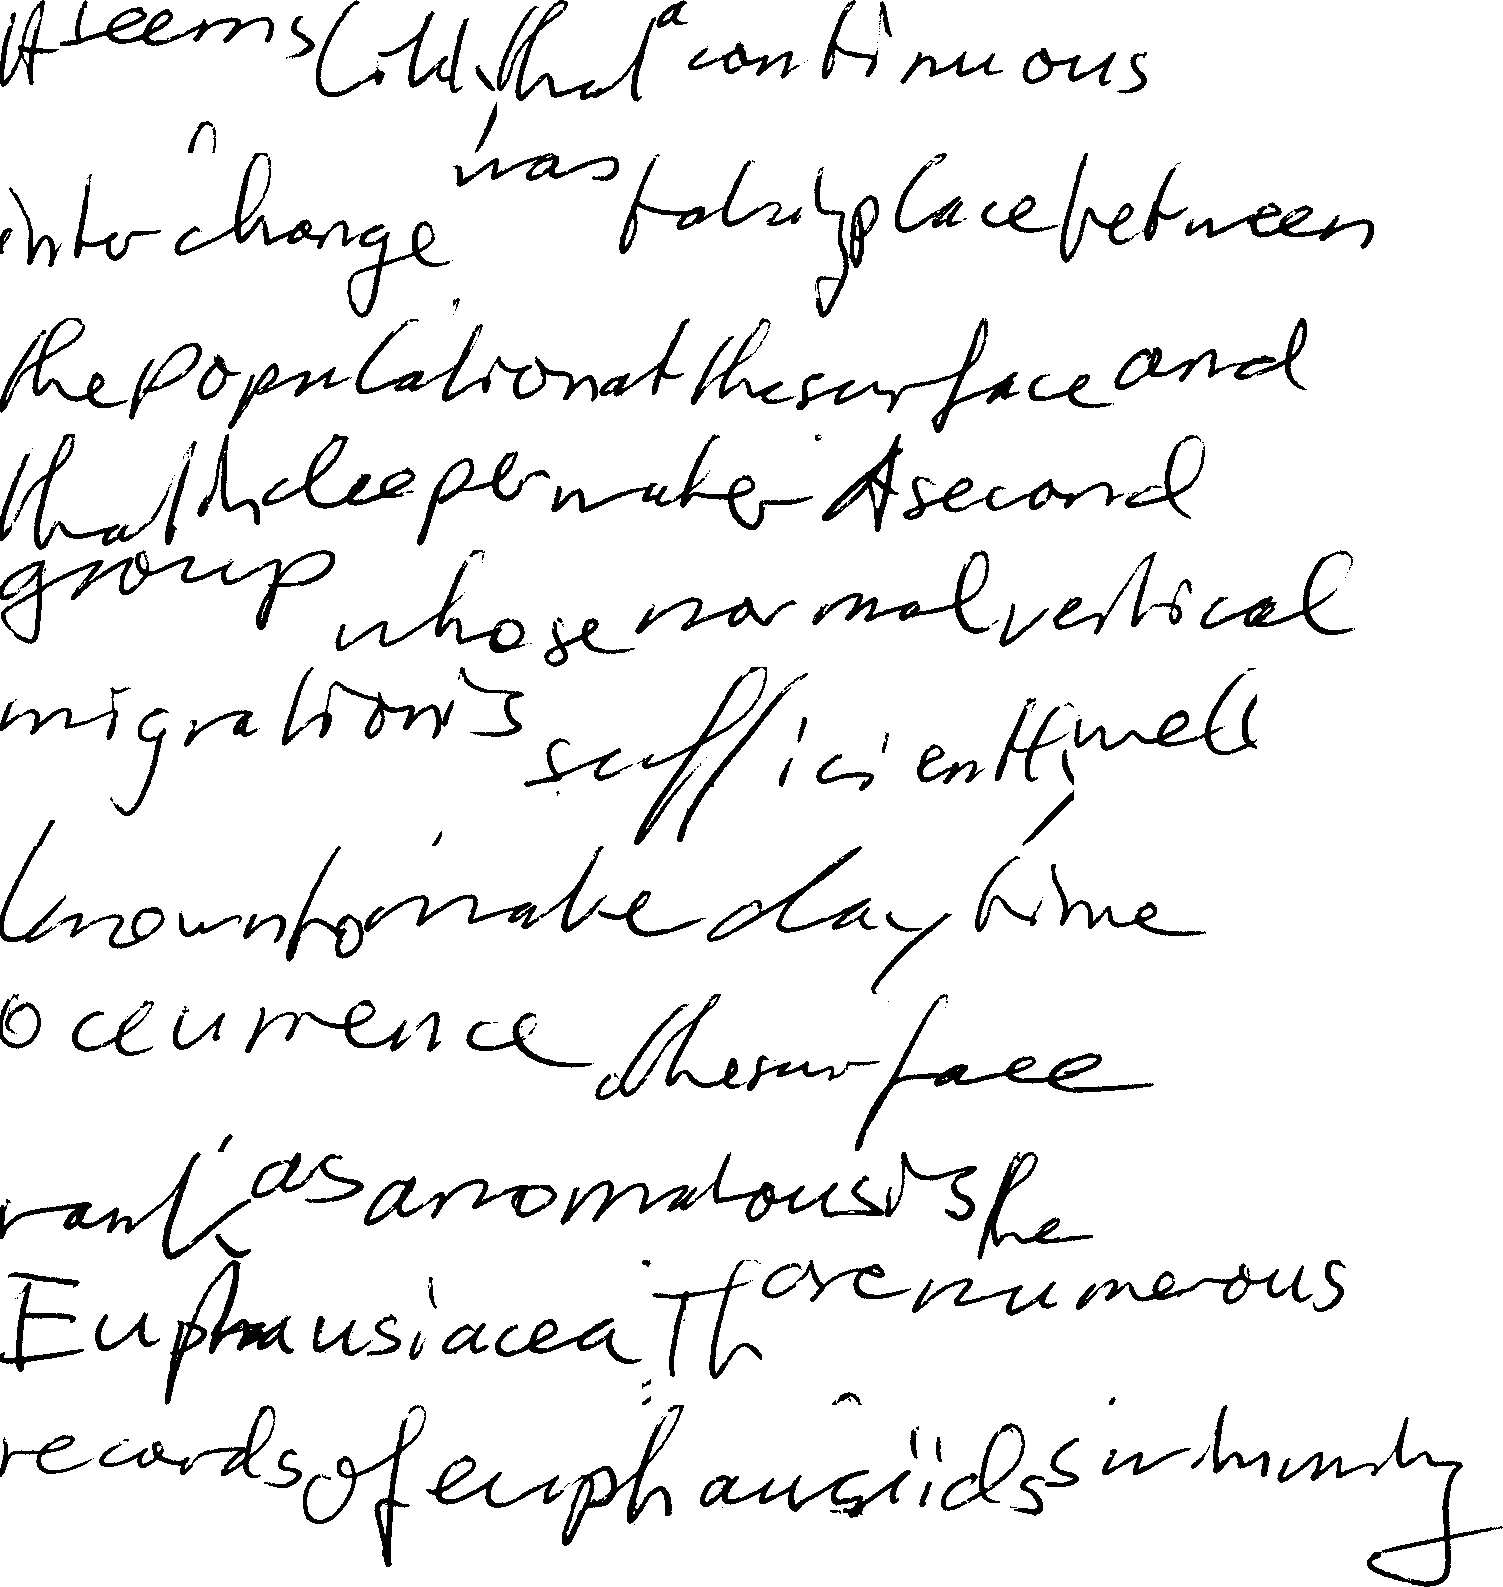 It seems likely that a continuous
interchange was taking place between
the population at the surface and
that in deeper water A second
group whose normal vertical
migration is sufficiently well
known to make daytime
occurrence at the surface
rank as anomalous is the
Euphausiacea There are numerous
records of euphausiids swimming